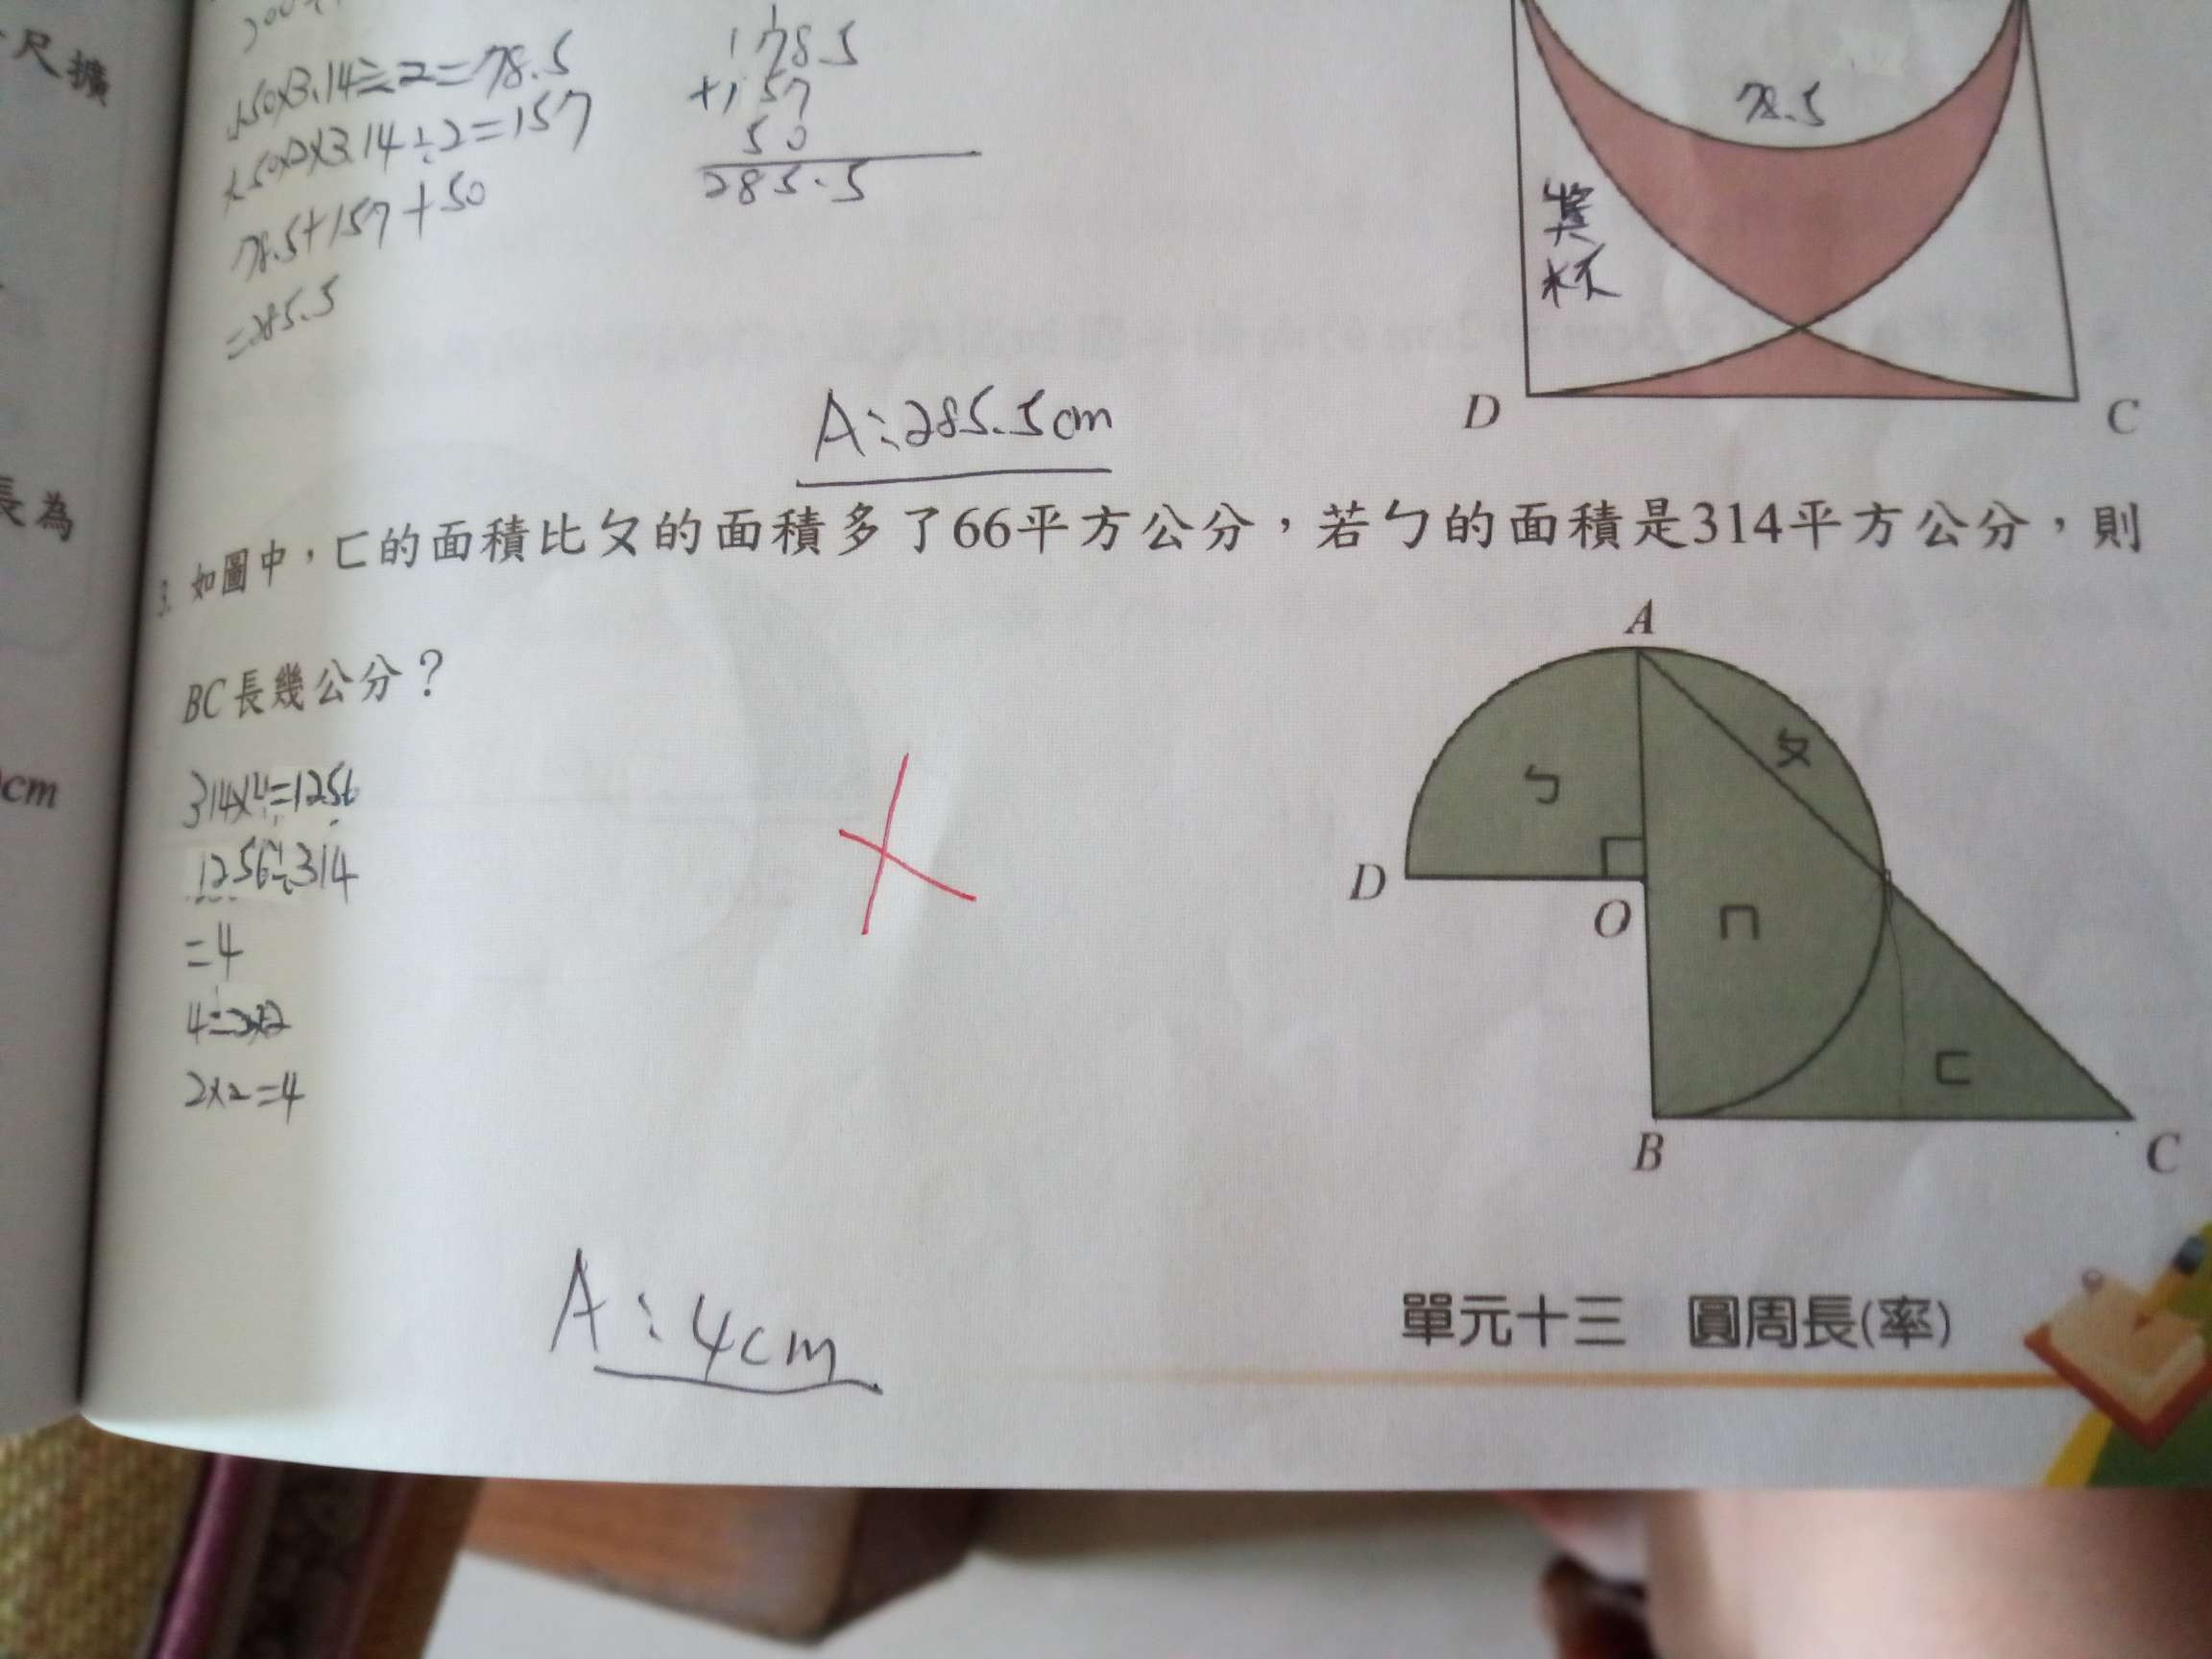 尺擴
長為
cm
50×3.14÷2=78.5
50×2×3.14÷2=157
78.5+157+50
=285.5
178.5
+157
50
285.5
A:285.5cm
78.5
獎
杯
D
C
3. 如圖中，ㄈ的面積比ㄆ的面積多了66平方公分，若ㄅ的面積是314平方公分，則
BC長幾公分？
314×4=1256
1256÷314
=4
2×2=4
A:4cm
A
ㄅ
ㄆ
D
O
ㄇ
ㄈ
B
C
單元十三 圓周長(率)